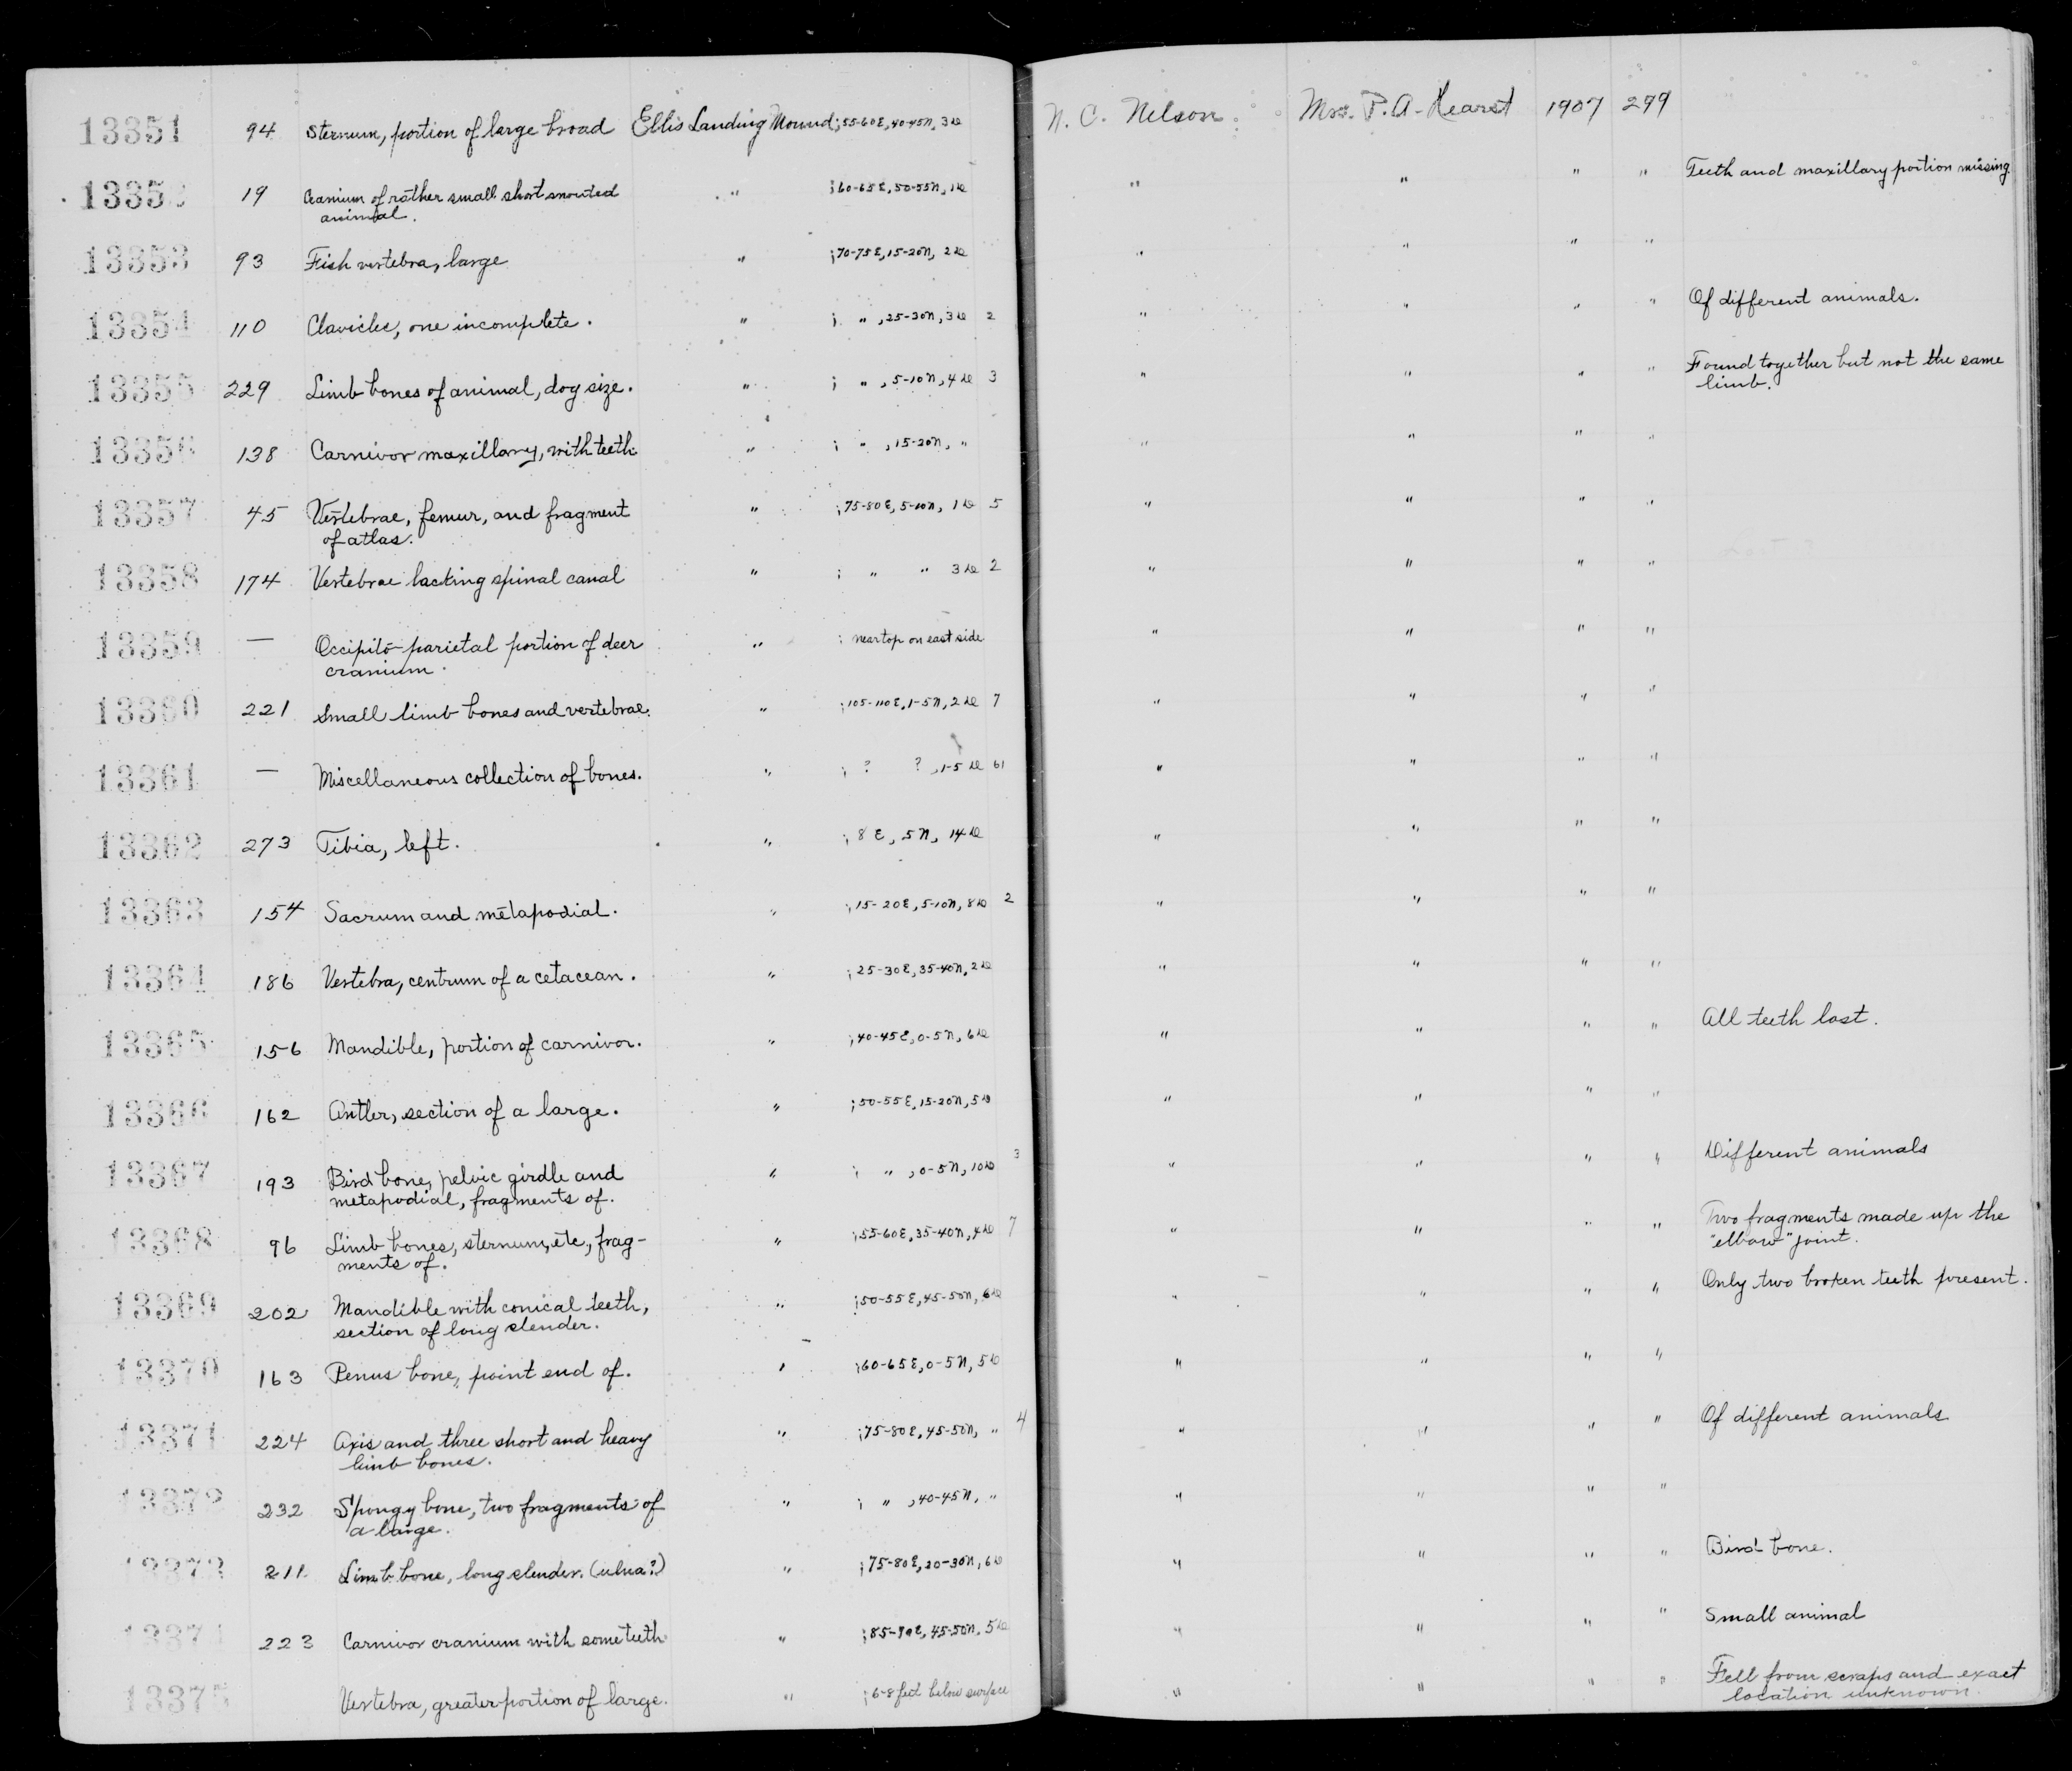 13351 94 Sternum, portion of large broad Ellis Landing Mound; 55-60E, 40-45N, 3 do N. C. Nelson. Mrs. P. A. Hearst 1907 299
1335 19 Cranium of rather small short snouted " ; 60-65E, 50-55N, 1 do " " " " Teeth and maxillary portion missing.
animal.
13353 93 Fish vertebra, large " ; 70-75E, 15-20N, 2 do " " " "
13354 110 Clavicles, one incomplete. " ; " , 25-30N, 3 do 2 " " " " Of different animals.
13355 229 Limb bones of animal, dog size. " ; " , 5-10N, 4 do 3 " " " " Found together but not the same
limb.
13356 138 Carnivor maxillary, with teeth. " ; " , 15-20N, " " " " "
13357 45 Vertebrae, femur, and fragment " ; 75-80E, 5-10N, 1 do 5 " " " "
of atlas.
13358 174 Vertebrae lacking spinal canal " ; " " 3 do 2 " " " "
13359 — Occipito-parietal portion of deer " ; near top on east side " " " "
cranium.
13360 221 Small limb bones and vertebrae. " ; 105-110E, 1-5N, 2 do 7 " " " "
13361 — Miscellaneous collection of bones. " ; ? ? , 1-5 do 61 " " " "
13362 273 Tibia, left. " ; 8E, 5N, 14 do " " " "
13363 154 Sacrum and metapodial. " ; 15-20E, 5-10N, 8 do 2 " " " "
13364 186 Vertebra, centrum of a cetacean. " ; 25-30E, 35-40N, 2 do " " " "
13365 156 Mandible, portion of carnivor. " ; 40-45E, 0-5N, 6 do " " " " All teeth lost.
13366 162 Antler, section of a large. " ; 50-55E, 15-20N, 5 do " " " "
13367 193 Bird bone, pelvic girdle and " ; " , 0-5N, 10 do 3 " " " " Different animals
metapodial, fragments of.
13368 96 Limb bones, sternum, etc., frag- " ; 55-60E, 35-40N, 4 do 7 " " " " Two fragments made up the
ments of. "elbow" joint.
13369 202 Mandible with conical teeth, " ; 50-55E, 45-50N, 6 do " " " " Only two broken teeth present.
section of long slender.
13370 163 Penus bone, point end of. " ; 60-65E, 0-5N, 5 do " " " "
13371 224 Axis and three short and heavy " ; 75-80E, 45-50N, " 4 " " " " Of different animals
limb bones.
13372 232 Spongy bone, two fragments of " ; " , 40-45N, " " " " "
a large.
13373 211 Limb bone, long slender. (ulna?) " ; 75-80E, 20-30N, 6 do " " " " Bird bone.
1337 223 Carnivor cranium with some teeth " ; 85-90E, 45-50N, 5 do " " " " Small animal
13375 Vertebra, greater portion of large. " ; 6-8 feet below surface " " " " Fell from scraps and exact
location unknown.